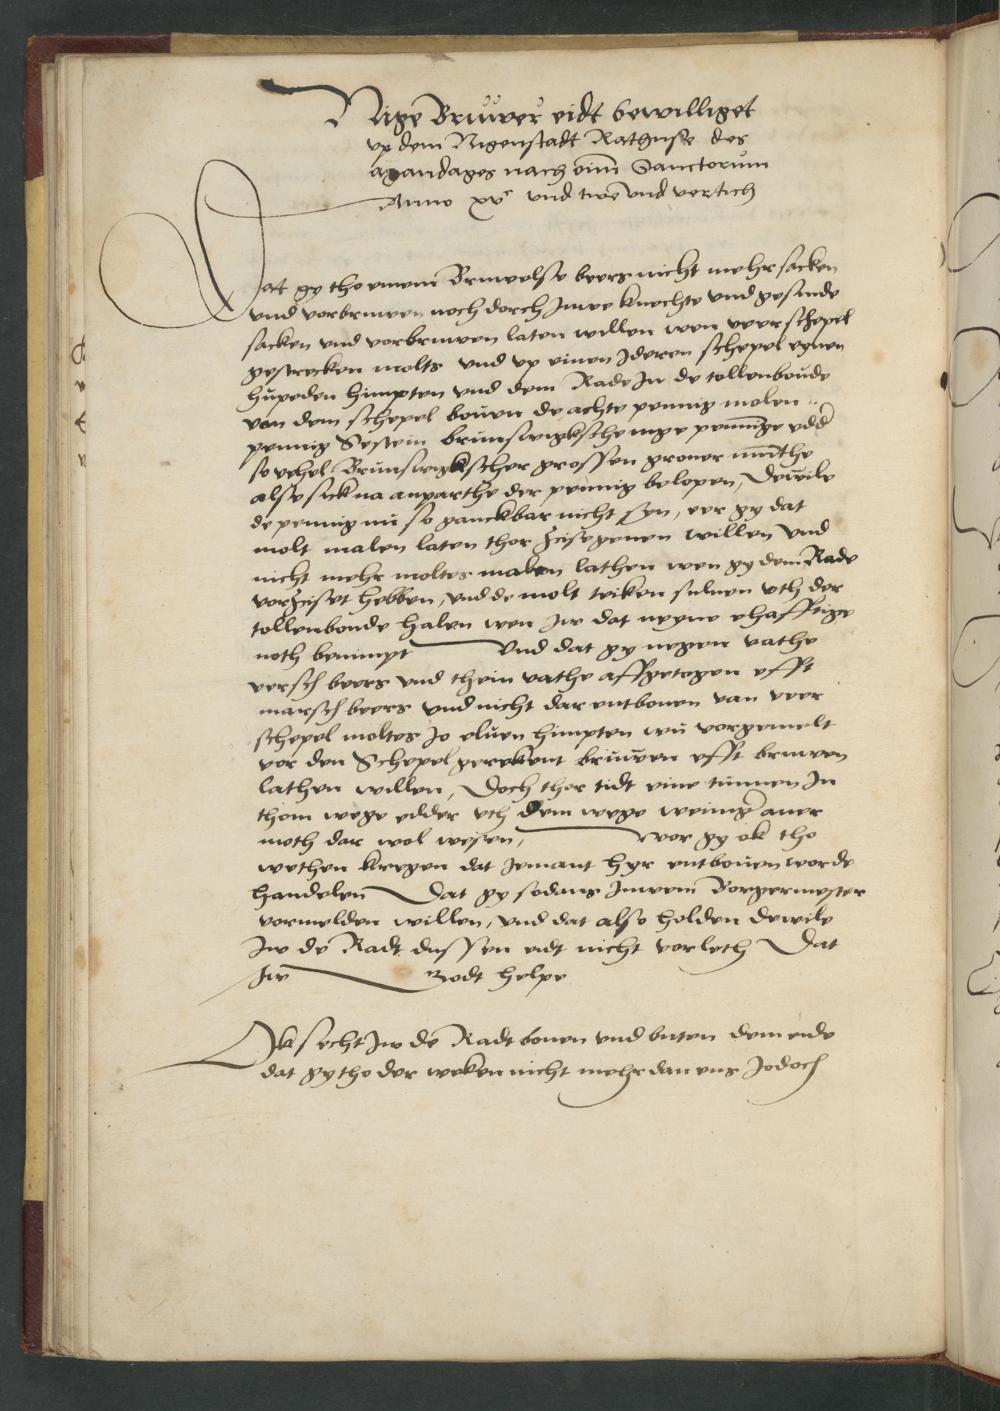 Nige Bruwer eidt bewilliget
up dem Nigenstadt Rathuse des
agandages nach oīm Sanctorum
Anno xvᶜ und twe und vertich
Dat gy tho einem Bruwelse beers nicht mehr sacken
und vorbruwen noch dorch Juwe knechte und gesinde
sacken und vorbruwen laten willen wen veer schepel
gestrecken molts und up einen Jderen schepel eynen
hupeden himpten und dem Rade Jn de tollenboude
van dem schepel bouen de achte pennig molen
pennig Sestein brunswigksche nige pennige edd̄
so vehel Brunswigkscher grossen groner munthe
alse sick na anparthe der pennig belopen, Dewile
de pennig nu so ganckbar nicht syn, eer gy dat
molt malen laten thor Zise geuen willen und
nicht mehr moltes malen lathen wen gy dem Rade
vorziset hebben, und de molt teiken suluen uth der
tollenboude halen wen Jw dat neyne ehafftige
noth benimpt und dat gy negen vathe
versch beers und thein vathe affgetogen efft
marsch beers und nicht dar entbouen van veer
schepel moltes Jo eluen himpten wu vorgemelt
vor den Schepel gerekent bruwen efft bruwen
lathen willen, Doch thor tidt eine tunnen Jn
thom wege edder uth dem wege weinig auer
moth dar wol wesen, wor gy ok tho
wethen kregen dat Jemant hyr entbouen worde
handelen Dat gy sodans Juwem Borgermester
vormelden willen, und dat also holden dewile
Jw de Radt dussen eidt nicht vorleth Dat
Jw Godt helpe
Ok secht Jw de Radt bouen und buten dem eide
dat gy tho der weken nicht mehr dan eins Jodoch